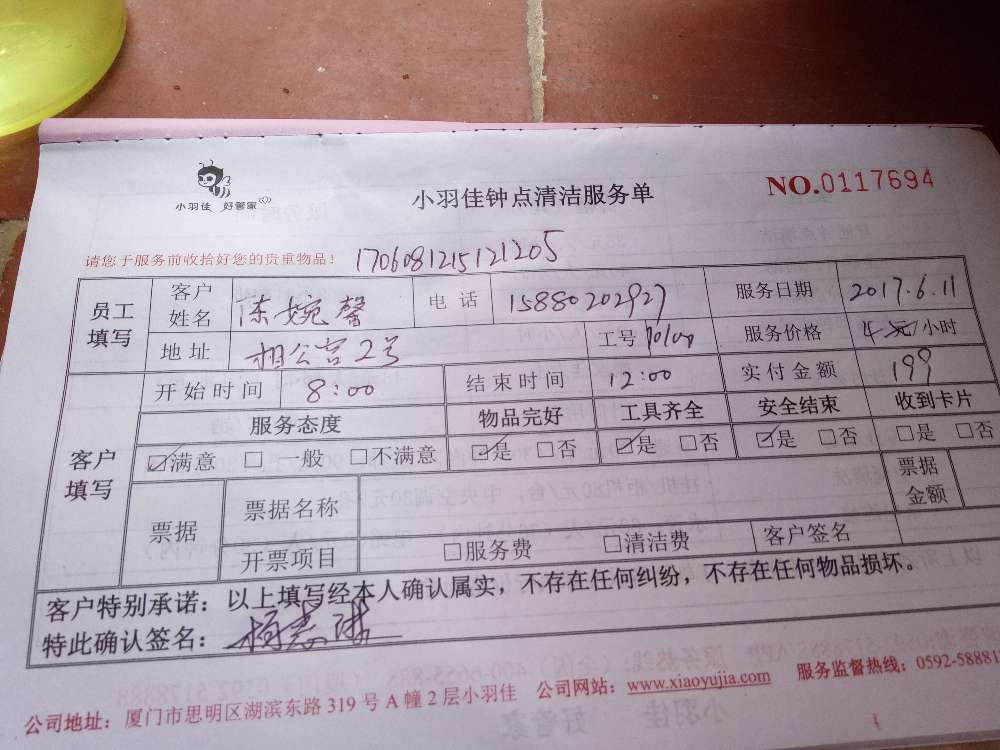 小羽佳 好管家
小羽佳钟点清洁服务单
NO.0117694
请您于服务前收拾好您的贵重物品! 1706081215121205
员工填写 客户姓名 陈婉馨 电话 15880202927 服务日期 2017.6.11
地址 相公宫2号 工号 服务价格 4 元/小时
客户填写 开始时间 8:00 结束时间 12:00 实付金额 199
服务态度 物品完好 工具齐全 安全结束 收到卡片
☑满意 □ 一般 □不满意 ☑是 □否 ☑是 □否 ☑是 □否 □是 □否
票据 票据名称 票据金额
开票项目 □服务费 □清洁费 客户签名
客户特别承诺:以上填写经本人确认属实,不存在任何纠纷,不存在任何物品损坏。
特此确认签名:
公司地址:厦门市思明区湖滨东路 319 号 A 幢 2 层小羽佳 公司网站:www.xiaoyujia.com 服务监督热线:0592-58881